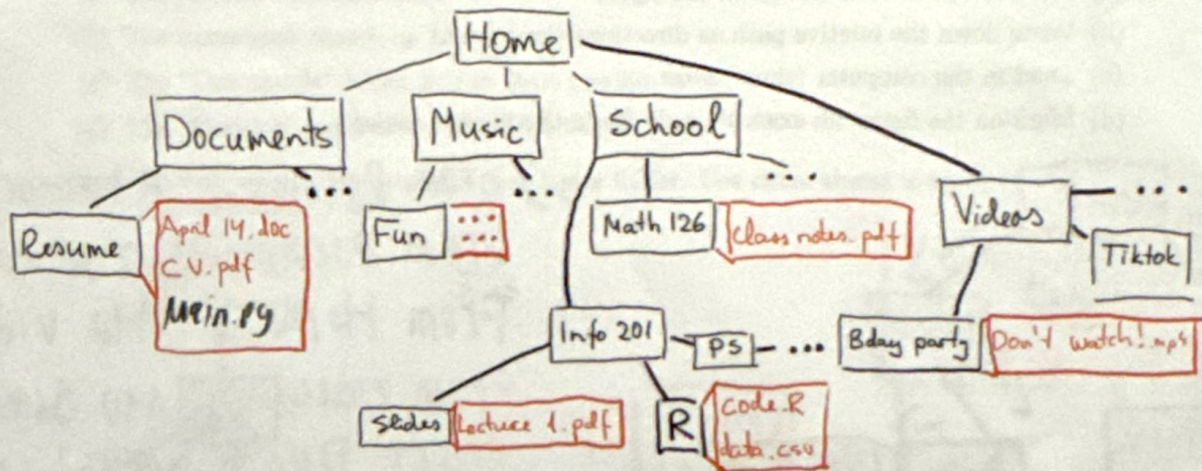 Home
Documents
Music
School
Videos
Resume
April 14.doc
CV.pdf
Main.py
Fun
Math 126
Class notes.pdf
Tiktok
Info 201
PS
Bday party
Don't watch!.mp4
Slides
Lecture 1.pdf
R
code.R
data.csv